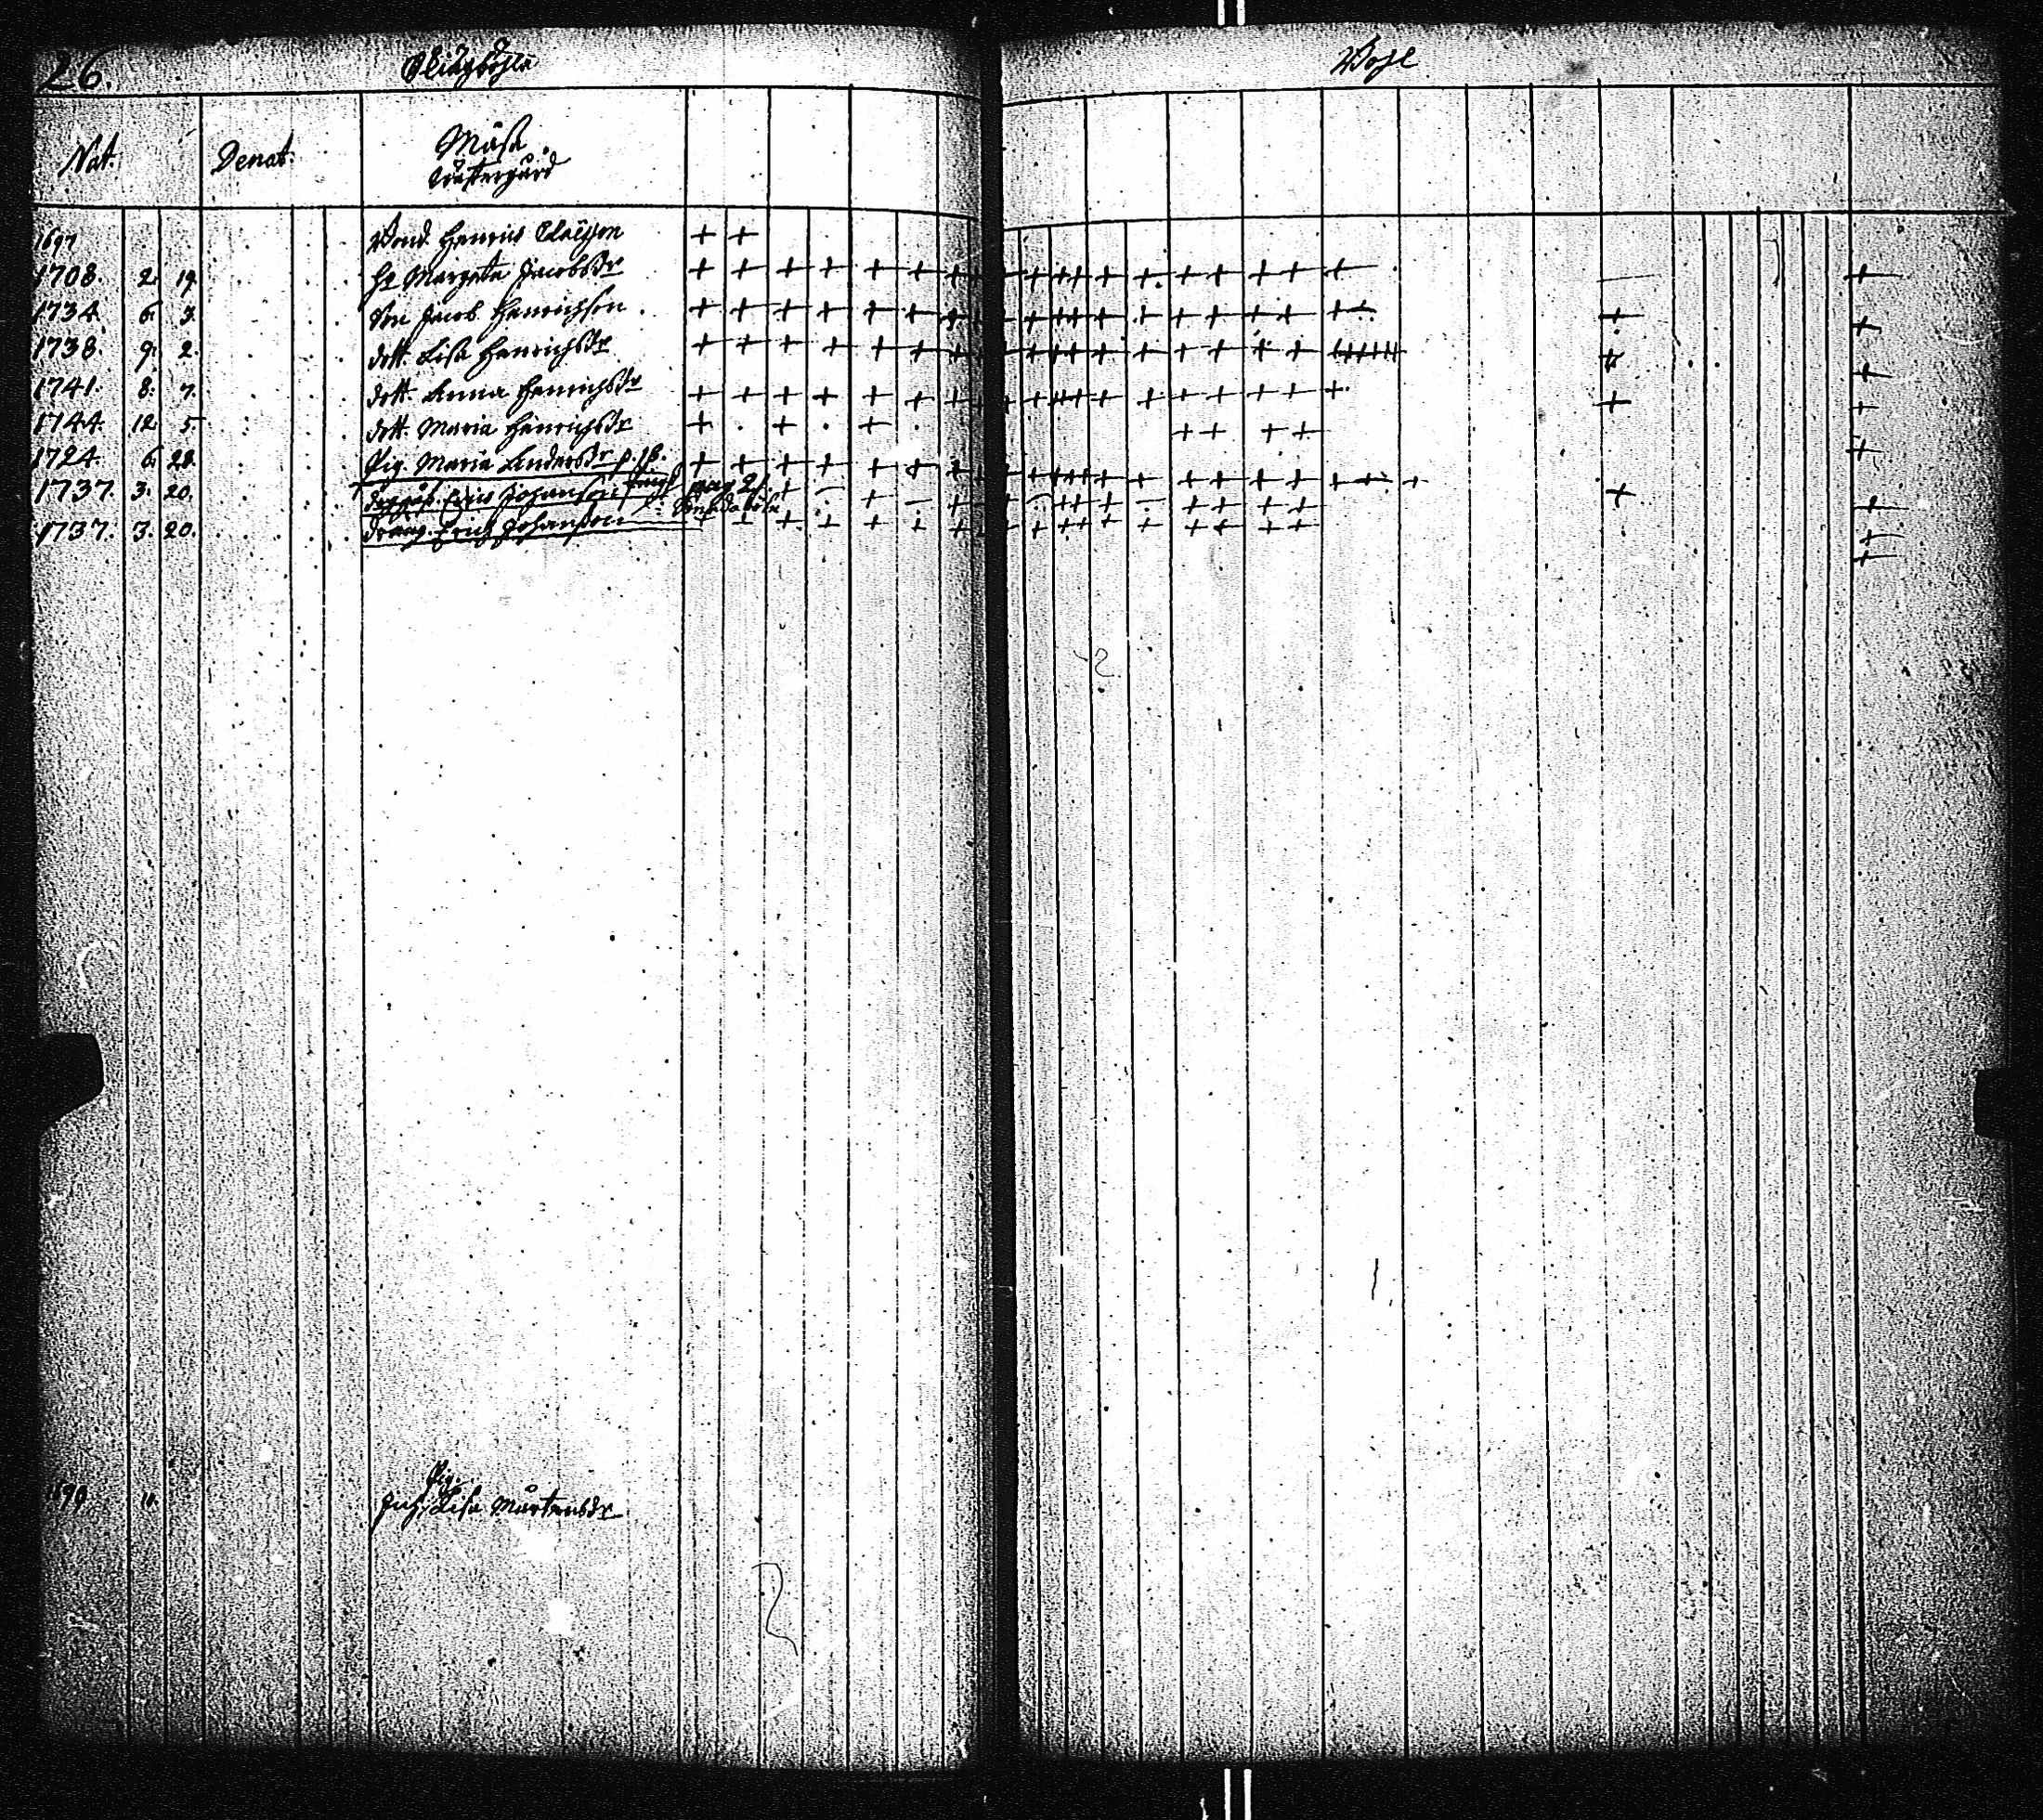 26.
Wohl
Nat. Denat.
Måsa
Wästergård
1697 Bond. Henric Claesson + +
1708. 2. 19. H. Margeta Jacobsdr + + + + + + + + + + + + + + + + + + +
1734. 6. 3. Son Jacob Henrichson. + + + + + + + + + + + + + + + + + + +
1738. 9. 2. dott. Lisa Henrichsdr + + + + + + + + + + + + + + + + + + +
1741. 8. 7. dott. Anna Henrichsdr + + + + + + + + + + + + + + + + + + +
1744. 12. 5. dott. Maria Henrichsdr + . + . + . + + + +
1724. 6. 28. Pig. Maria Andersdr + + + + + + + + + + + + + + + + + +
1737. 3. 20. Johanson pag 21.
1737. 3. 20. dräng. Erich Johansson + + + + + + + + + + + + +
Pig.
Lisa Mårtensdr